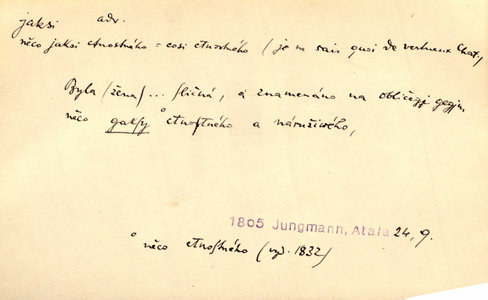 jaksi adv.
něco jaksi ctnostného = cosi ctnostného (je ne sais quoi de vertueux Chat.)
Byla (žena) ... sličná, a znamenáno na obličegi gegjm
něco gaksy° ctnostného a náruživého,
1805 Jungmann, Atala 24, 9.
° něco ctnostného (vyd. 1832)